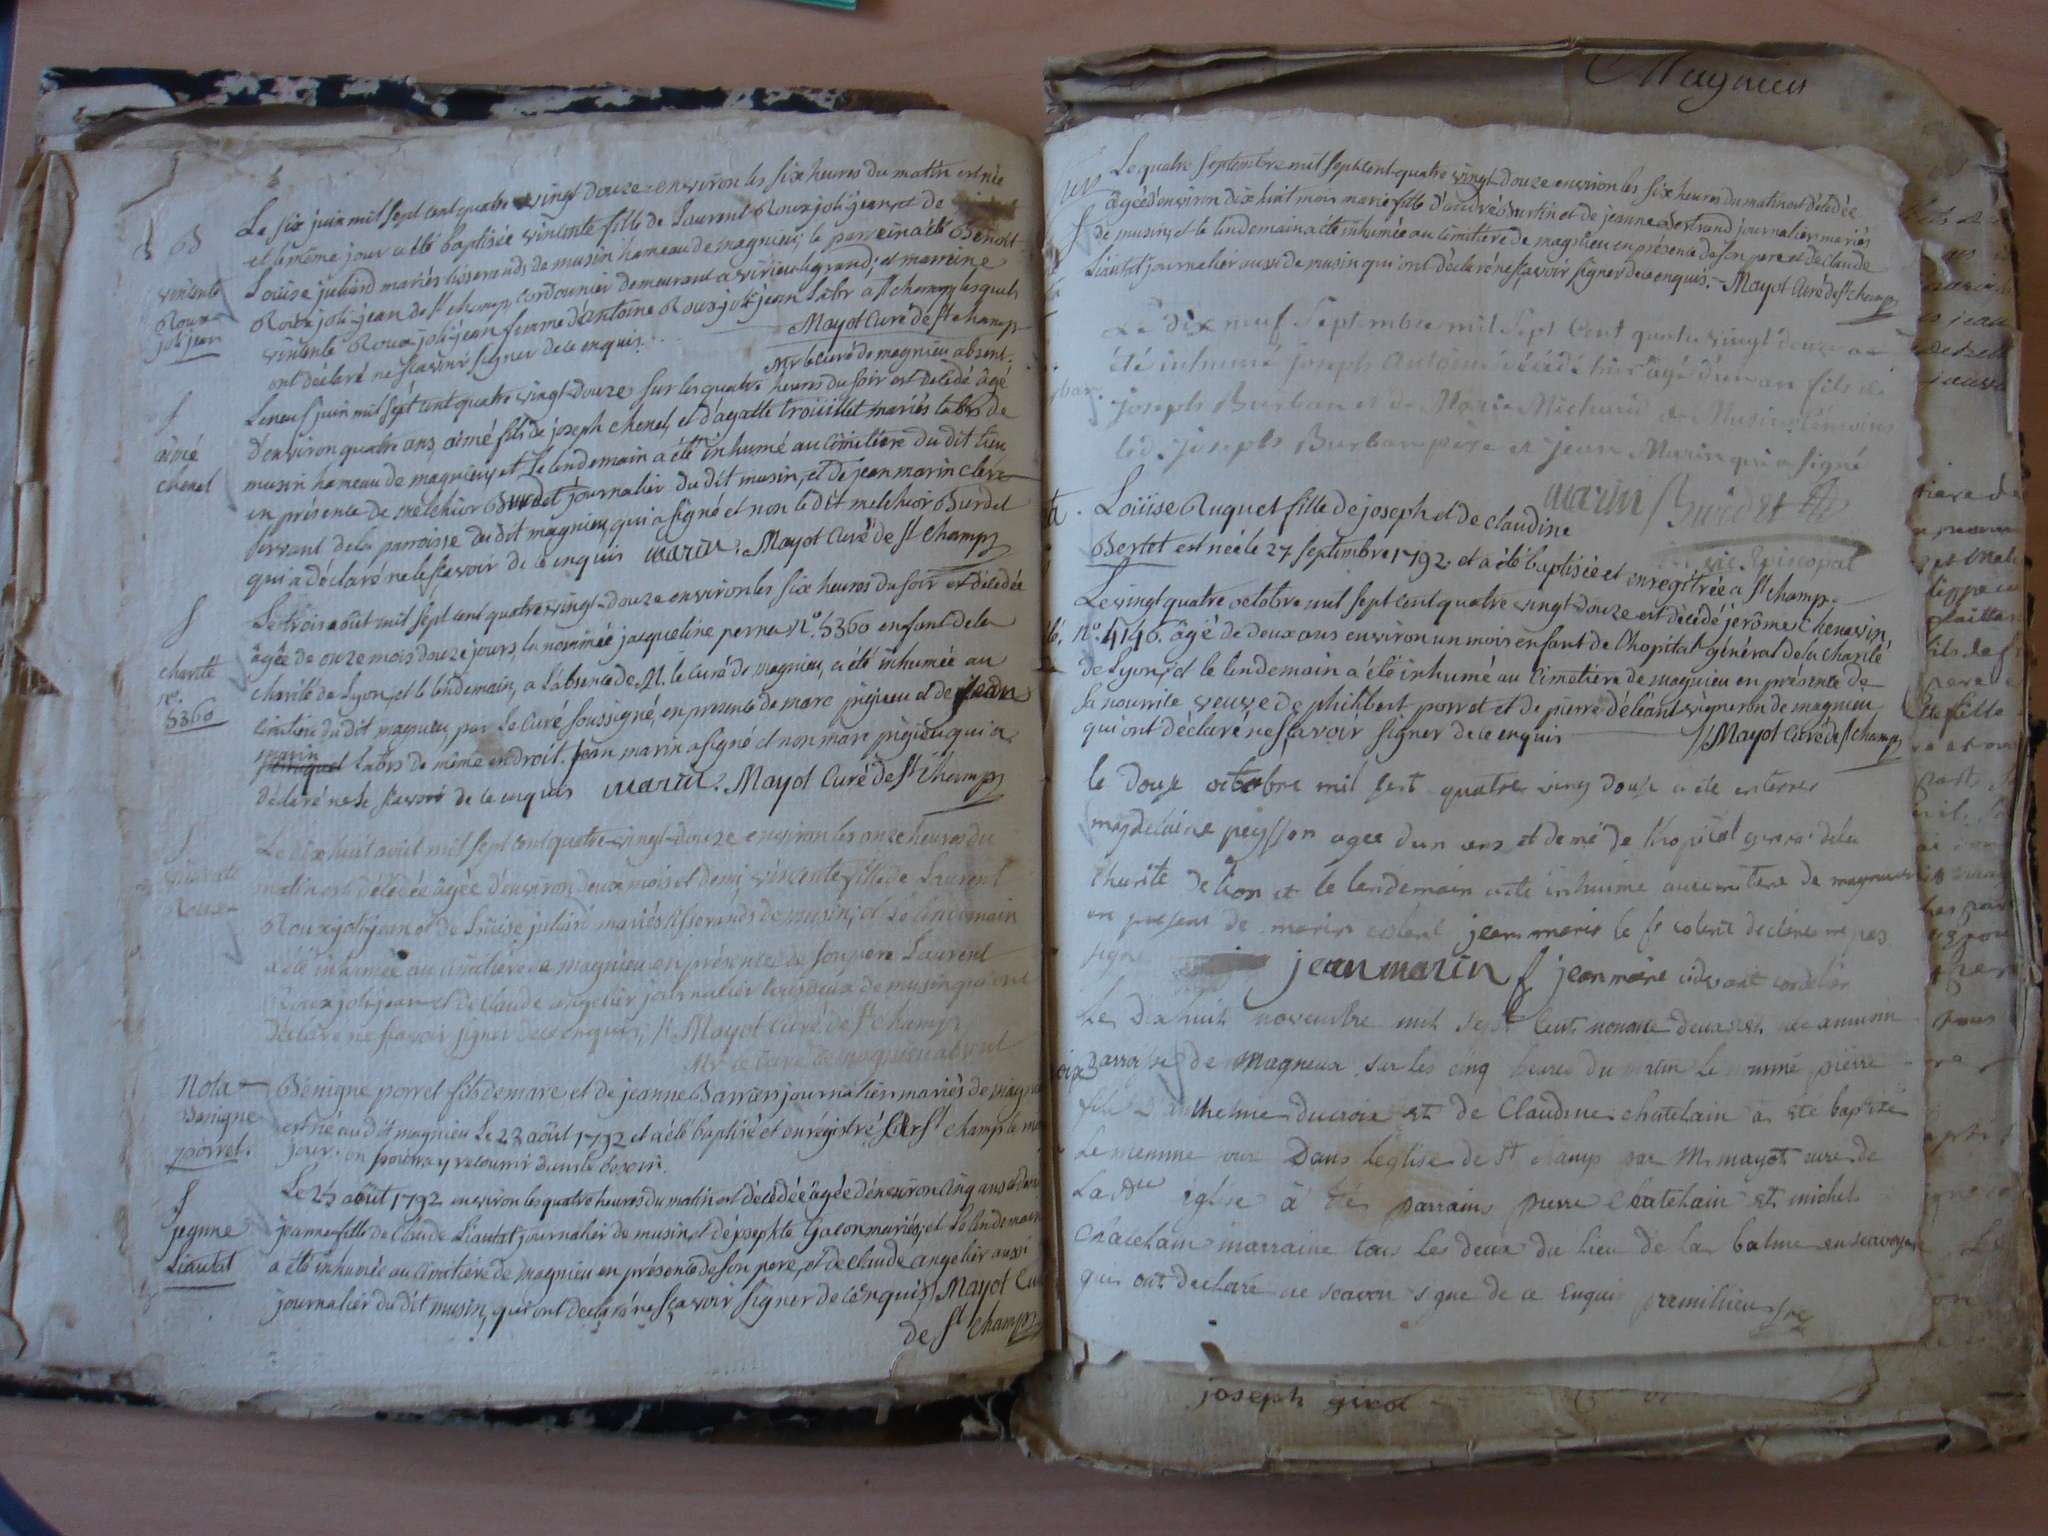 B
vincente
Roux
joli jean
Le six juin mil sept cent quatre vingt douze environ les six heures du matin est née
et le même jour a été baptisée vincente fille de Laurent Roux joli-jean et de
Loüise juliard mariés tisserands de musin hameau de magnieu; le parrein a été Benoit
Roux joli-jean de St champ cordonnier demeurant a virieu le grand; et marreine
vincente Roux joli-jean femme d'antoine Roux-joli-jean labr a St champ lesquels
ont déclaré ne sçavoir signer de ce enquis.
Mayot Curé de St champ
Mr le Curé de magnieu absent.
f
aimé
chenel
Le neuf juin mil sept cent quatre vingt douze sur les quatre heures du soir est décédé âgé
d'environ quatre ans, aimé fils de joseph chenel, et d'agatte troüillet mariés labrs de
musin hameau de magnieu, et le lendemain a été inhumé au cimetière du dit lieu
en présence de melchior Burdet journalier du dit musin, et de jean marin clerc
servant de la parroisse du dit magnieu, qui a signé et non le dit melchior Burdet
qui a déclaré ne le sçavoir de ce enquis marin. Mayot Curé de St champ
f
charité
no.
5360
Le trois août mil sept cent quatre vingt-douze environ les six heures du soir est décédée
âgée de onze mois douze jours, la nommée jacqueline no. 5360 enfant de la
charité de Lyon, et le lendemain, a l'absence de M. le Curé de magnieu, a été inhumée au
cimetiere du dit magnieu par le Curé soussigné, en presence de marc et de jean
marin labrs de même endroit. jean marin a signé et non marc qui a
déclaré ne le sçavoir de ce enquis marin. Mayot Curé de St champ
f
vincente
Roux
Le dix huit août mil sept cent quatre-vingt-douze environ les onze heures du
matin est décédée âgée d'environ deux mois et demi, vincente fille de Laurent
Roux joli jean et de Loüise juliard mariés tisserands de musin; et le lendemain
a été inhumée au cimetière de magnieu en présence de son pere Laurent
Roux joli jean et de claude angelier journalier tous deux de musin qui ont
déclaré ne sçavoir signer de ce enquis; Mayot Curé de St champ
Mr le Curé de magnieu absent
Nota
Benigne
porret.
Benigne porret fils de marc et de jeanne Barrier journaliers mariés de
est né au dit magnieu le 23 août 1792 et a été baptisé et enrégistré sur St champ le
jour. on pourra y recourir dans le besoin.
f
jeanne
Liautat
Le 25 août 1792 environ les quatre heures du matin est décédée âgée d'environ cinq ans
jeanne fille de claude Liautat journalier de musin et de josephte Gacon mariés, et le lendemain
a été inhumée au cimetière de magnieu en présence de son pere, et de claude angelier aussi
journalier du dit musin, qui ont declaré ne sçavoir signer de ce enquis Mayot Curé
de St champ
Magnieu
Le quatre septembre mil sept cent quatre vingt-douze environ les six heures du matin est décédée
âgée d'environ dix huit mois marie fille d'andré Burtin et de jeanne Bertrand journaliers mariés
de musin, et le lendemain a été inhumée au cimetiere de magnieu en présence de son pere et de claude
Liautat journalier aussi de musin qui ont déclaré ne sçavoir signer de ce enquis. Mayot Curé de St champ
Le dix neuf septembre mil sept cent quatre vingt douze a
été inhumé joseph Antoine décédé hier agé d'un an fils de
joseph Burban et de Marie Michaud de Musin témoins
led. joseph Burban père et jean Marin qui a signé
marin Burdet
vic. Episcopal
Loüise Ruquet fille de joseph et de claudine
Bertet est née le 27 septembre 1792. et a été baptisée et enregitrée a St champ.
Le vingt quatre octobre mil sept cent quatre vingt-douze est décédé jérôme chenavin,
no. 4146. âgé de deux ans environ un mois enfant de l'hopital général de la charité
de Lyon, et le lendemain a été inhumé au cimetiere de magnieu en présence de
sa nourrice veuve de philibert porret et de pierre vigneron de magnieu
qui ont déclaré ne sçavoir signer de ce enquis Mayot Curé de St champ
le douse octobre mil sept quatre ving douse a ete enterrer
magdelaine peysson agee dun ans et demé de lhopital general dela
charite de lion et le lendemain a ete inhume au cemetiere de magnieu
en presant de marin jean marie le declare ne pas
signe
jean marin jean marie cidevant cordelier
Le dix huit novembre mil sept cent nonante deux est née a musin
parroisse de magneux sur les cinq heures du matin le nommé pierre
fils d'anthelme ducroix et de Claudine chatelain a été baptisé
le memme jour Dans l'église de St champ par Mr mayot curé de
La dte église a été parrains pierre Chatelain et michel
Chatelain marraine tous les deux du lieu de la balme en scavoye
qui ont declaré ne scavoir signe de ce enquis premillieu
joseph girod